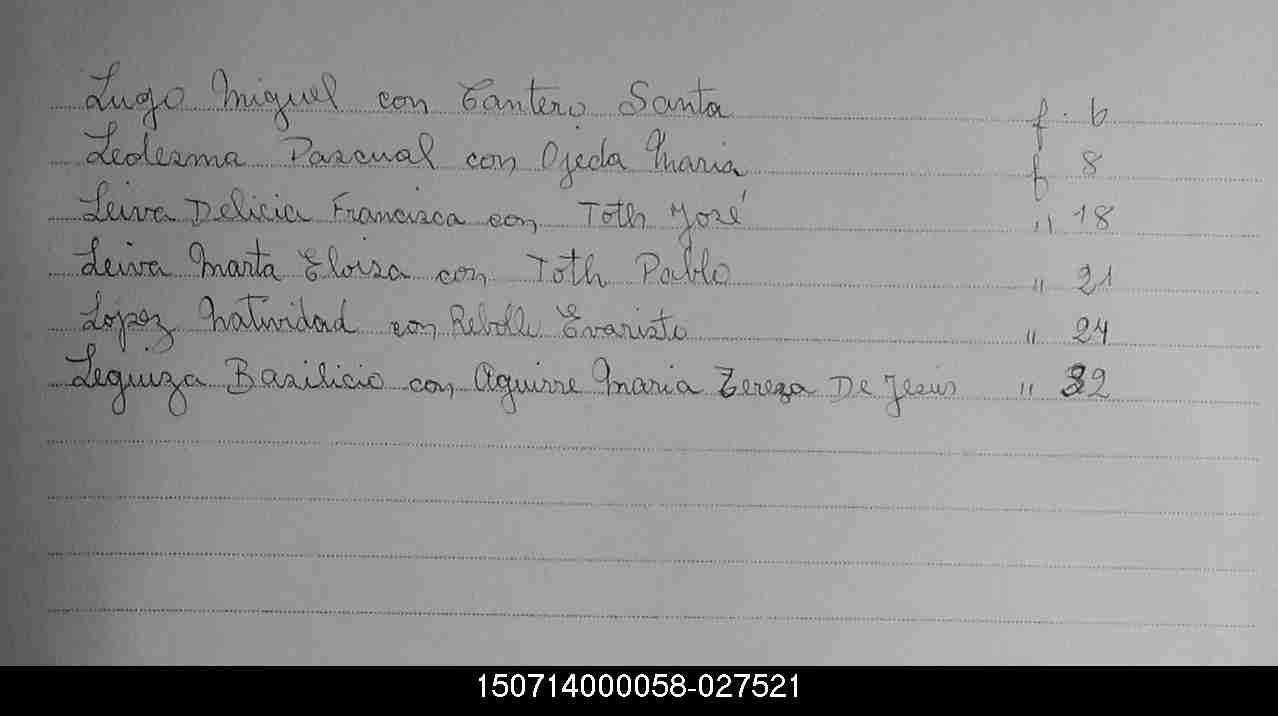 Lugo Miguel con Cantero Santa f. 6
Ledesma Pascual con Ojeda Maria f 8
Leiva Delicia Francisca con Toth José " 18
Leiva Marta Eloisa con Toth Pablo " 21
Lopez Natividad con Rebolle Evaristo " 24
Leguiza Basilicio con Aguirre Maria Tereza De Jesús " 32
150714000058-027521